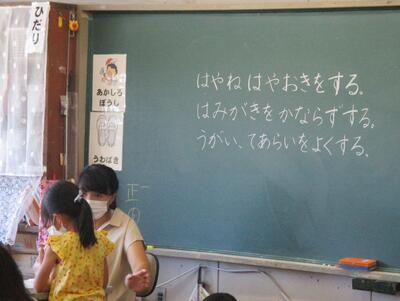 ひだり
あかしろ
ぼうし
うわばき
はやね はやおきをする。
はみがきをかならずする。
うがい、てあらいをよくする。
正一
の